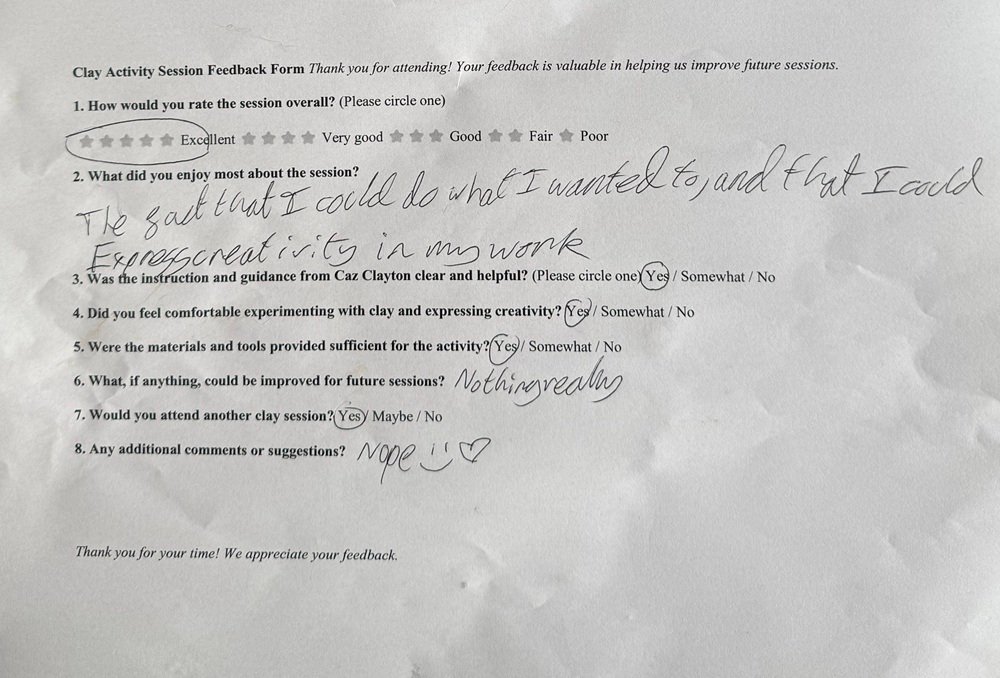 Clay Activity Session Feedback Form Thank you for attending! Your feedback is valuable in helping us improve future sessions.
1. How would you rate the session overall? (Please circle one)
★★★★★ Excellent ★★★★ Very good ★★★ Good ★★ Fair ★ Poor
2. What did you enjoy most about the session?
The fact that I could do what I wanted to, and that I could
Express creativity in my work
3. Was the instruction and guidance from Caz Clayton clear and helpful? (Please circle one) Yes / Somewhat / No
4. Did you feel comfortable experimenting with clay and expressing creativity? Yes / Somewhat / No
5. Were the materials and tools provided sufficient for the activity? Yes / Somewhat / No
6. What, if anything, could be improved for future sessions? Nothing really
7. Would you attend another clay session? Yes / Maybe / No
8. Any additional comments or suggestions? Nope :) ♡
Thank you for your time! We appreciate your feedback.